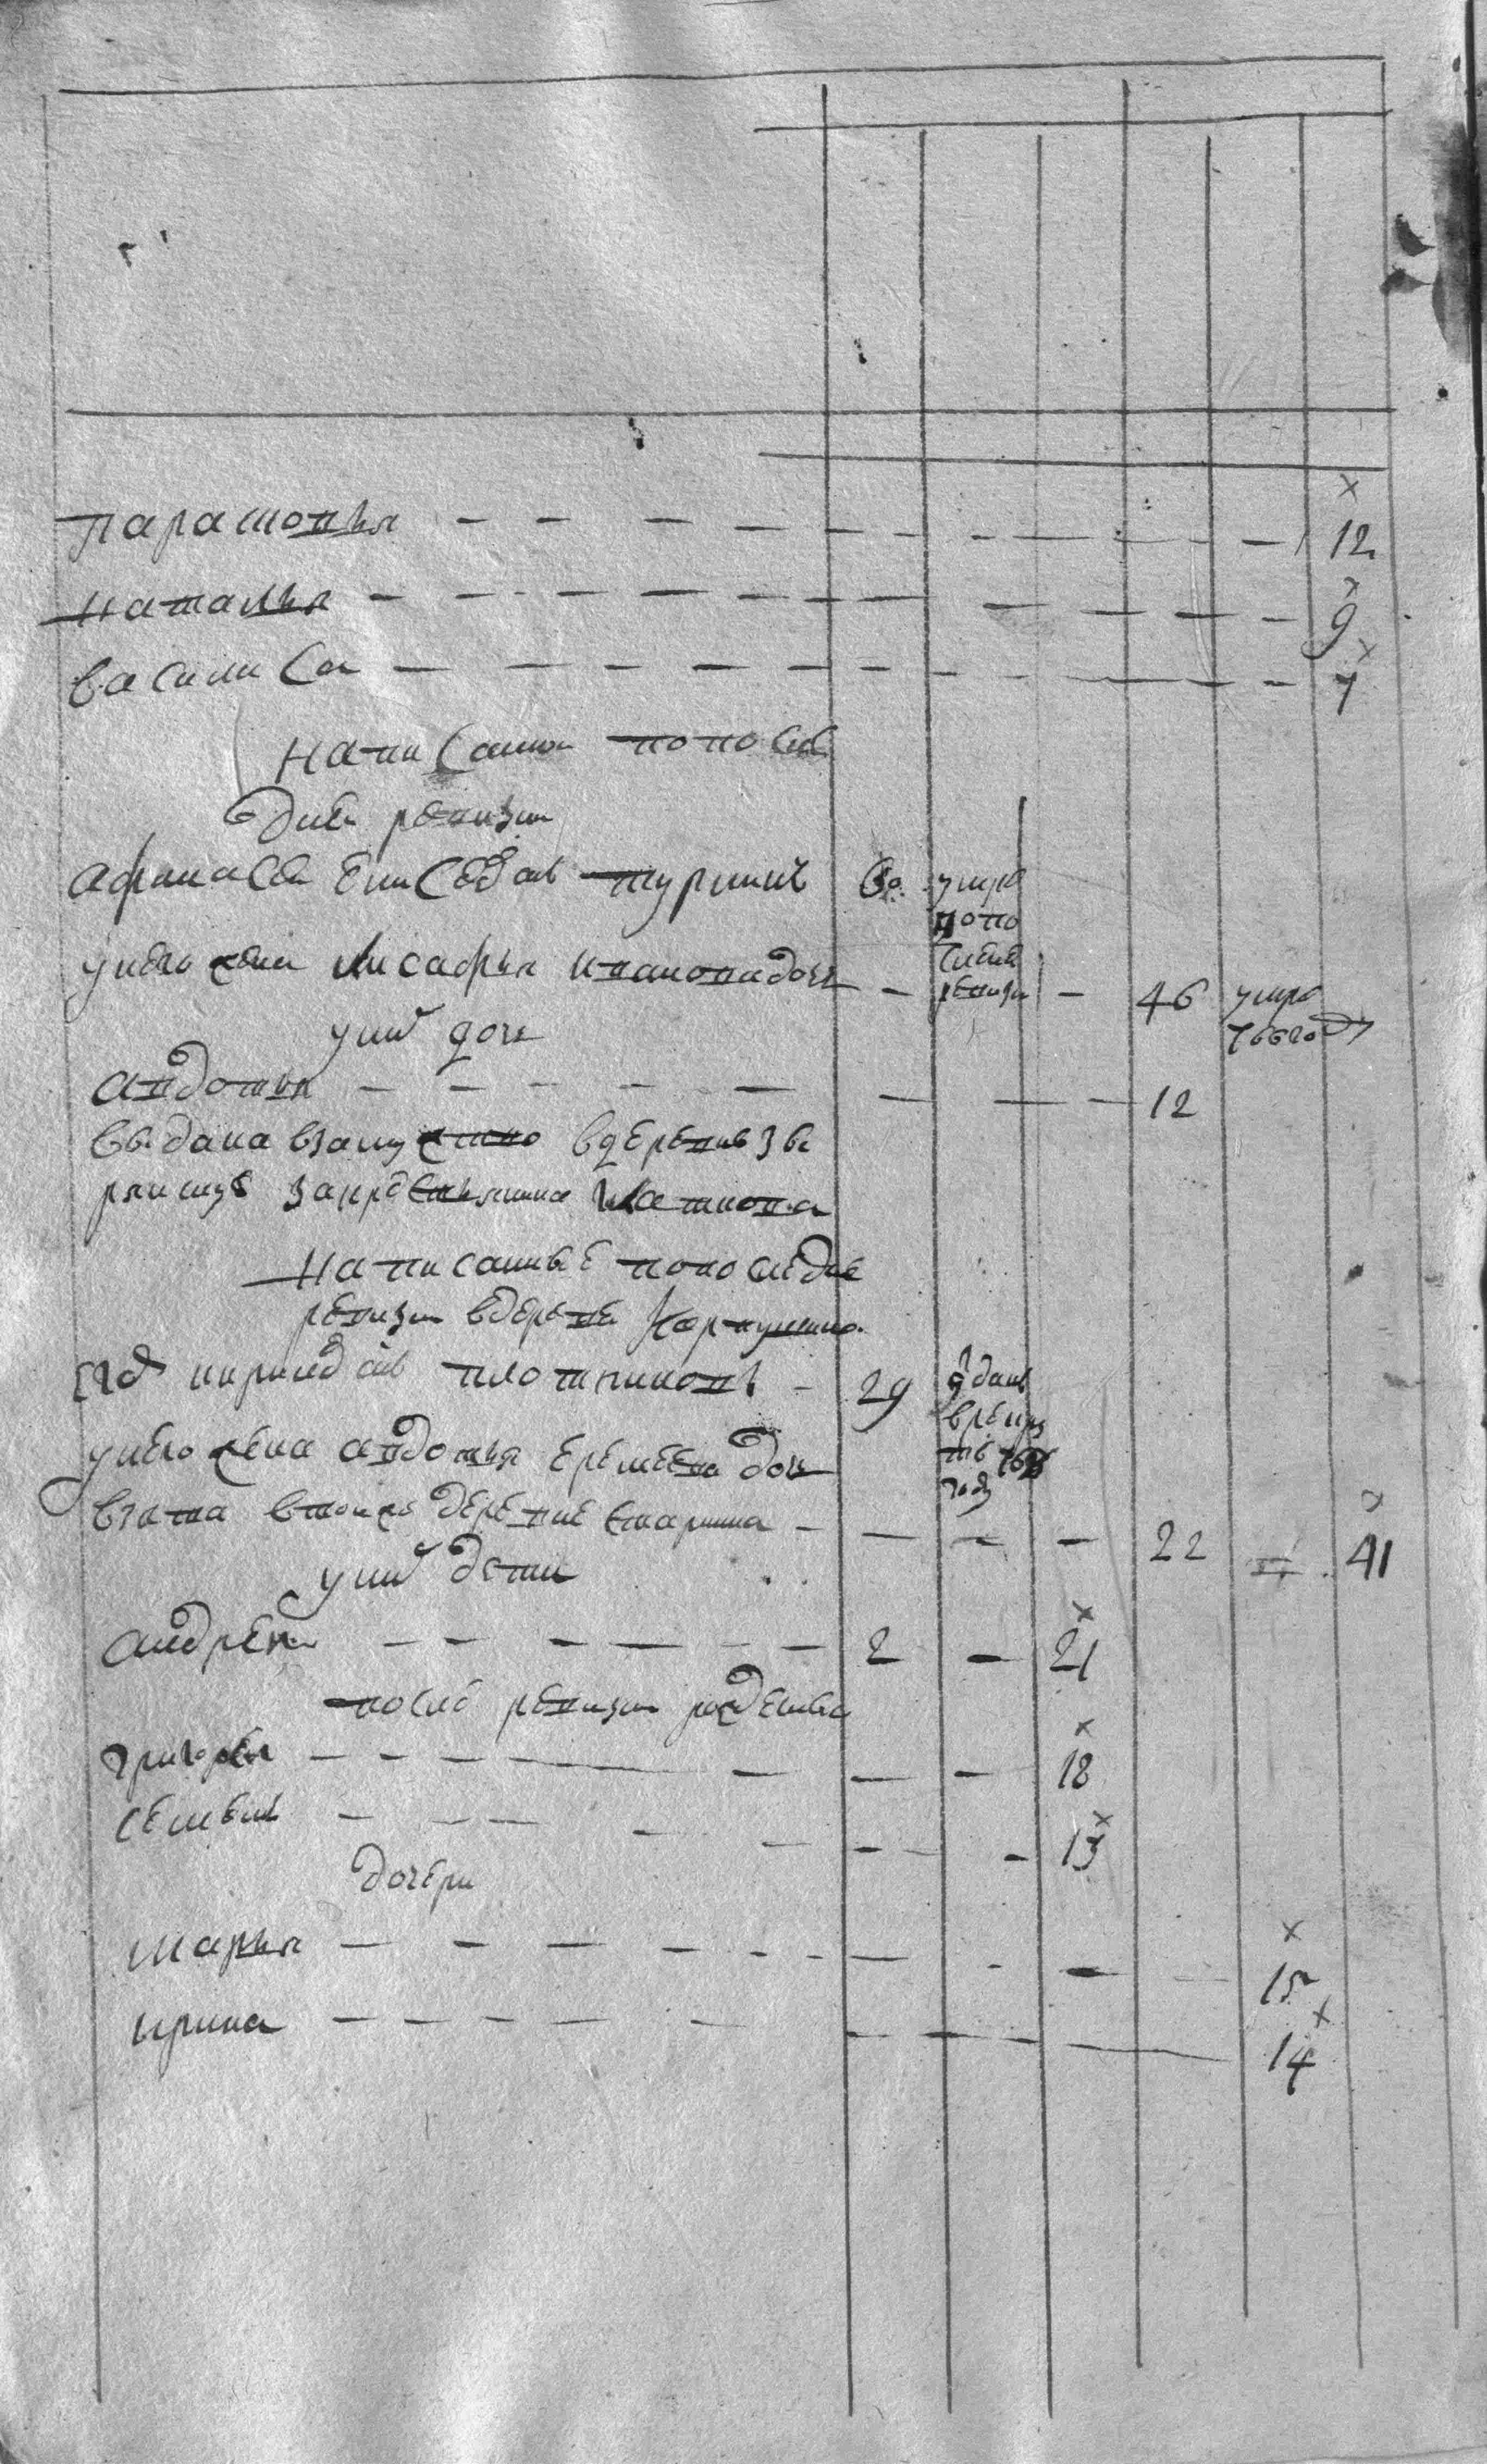 парамонья 12
наталья 9
василиса 7
написанои попослѣ
дней ревизи
афонасеи сын турминъ 60 умре
попо
слѣдней
ревизи
унего жена анисафья иванова дочь 46 умре
766 году
уних дочь
авдотья 12
выдана взамужство вдеревню зве
рянцу закрестьянина
написанные попоследне
ревизи вдеревне коркунино
кириловъ плотниковъ 29 отданъ
врекру
ты 768
году
унего жена авдотья еремеева дочь
взята втоиже деревне старинна 22 41
уних дети
андреи 2 21
после ревизи рожденыя
григореи 18
семенъ 13
дочери
марья 15
ирина 14